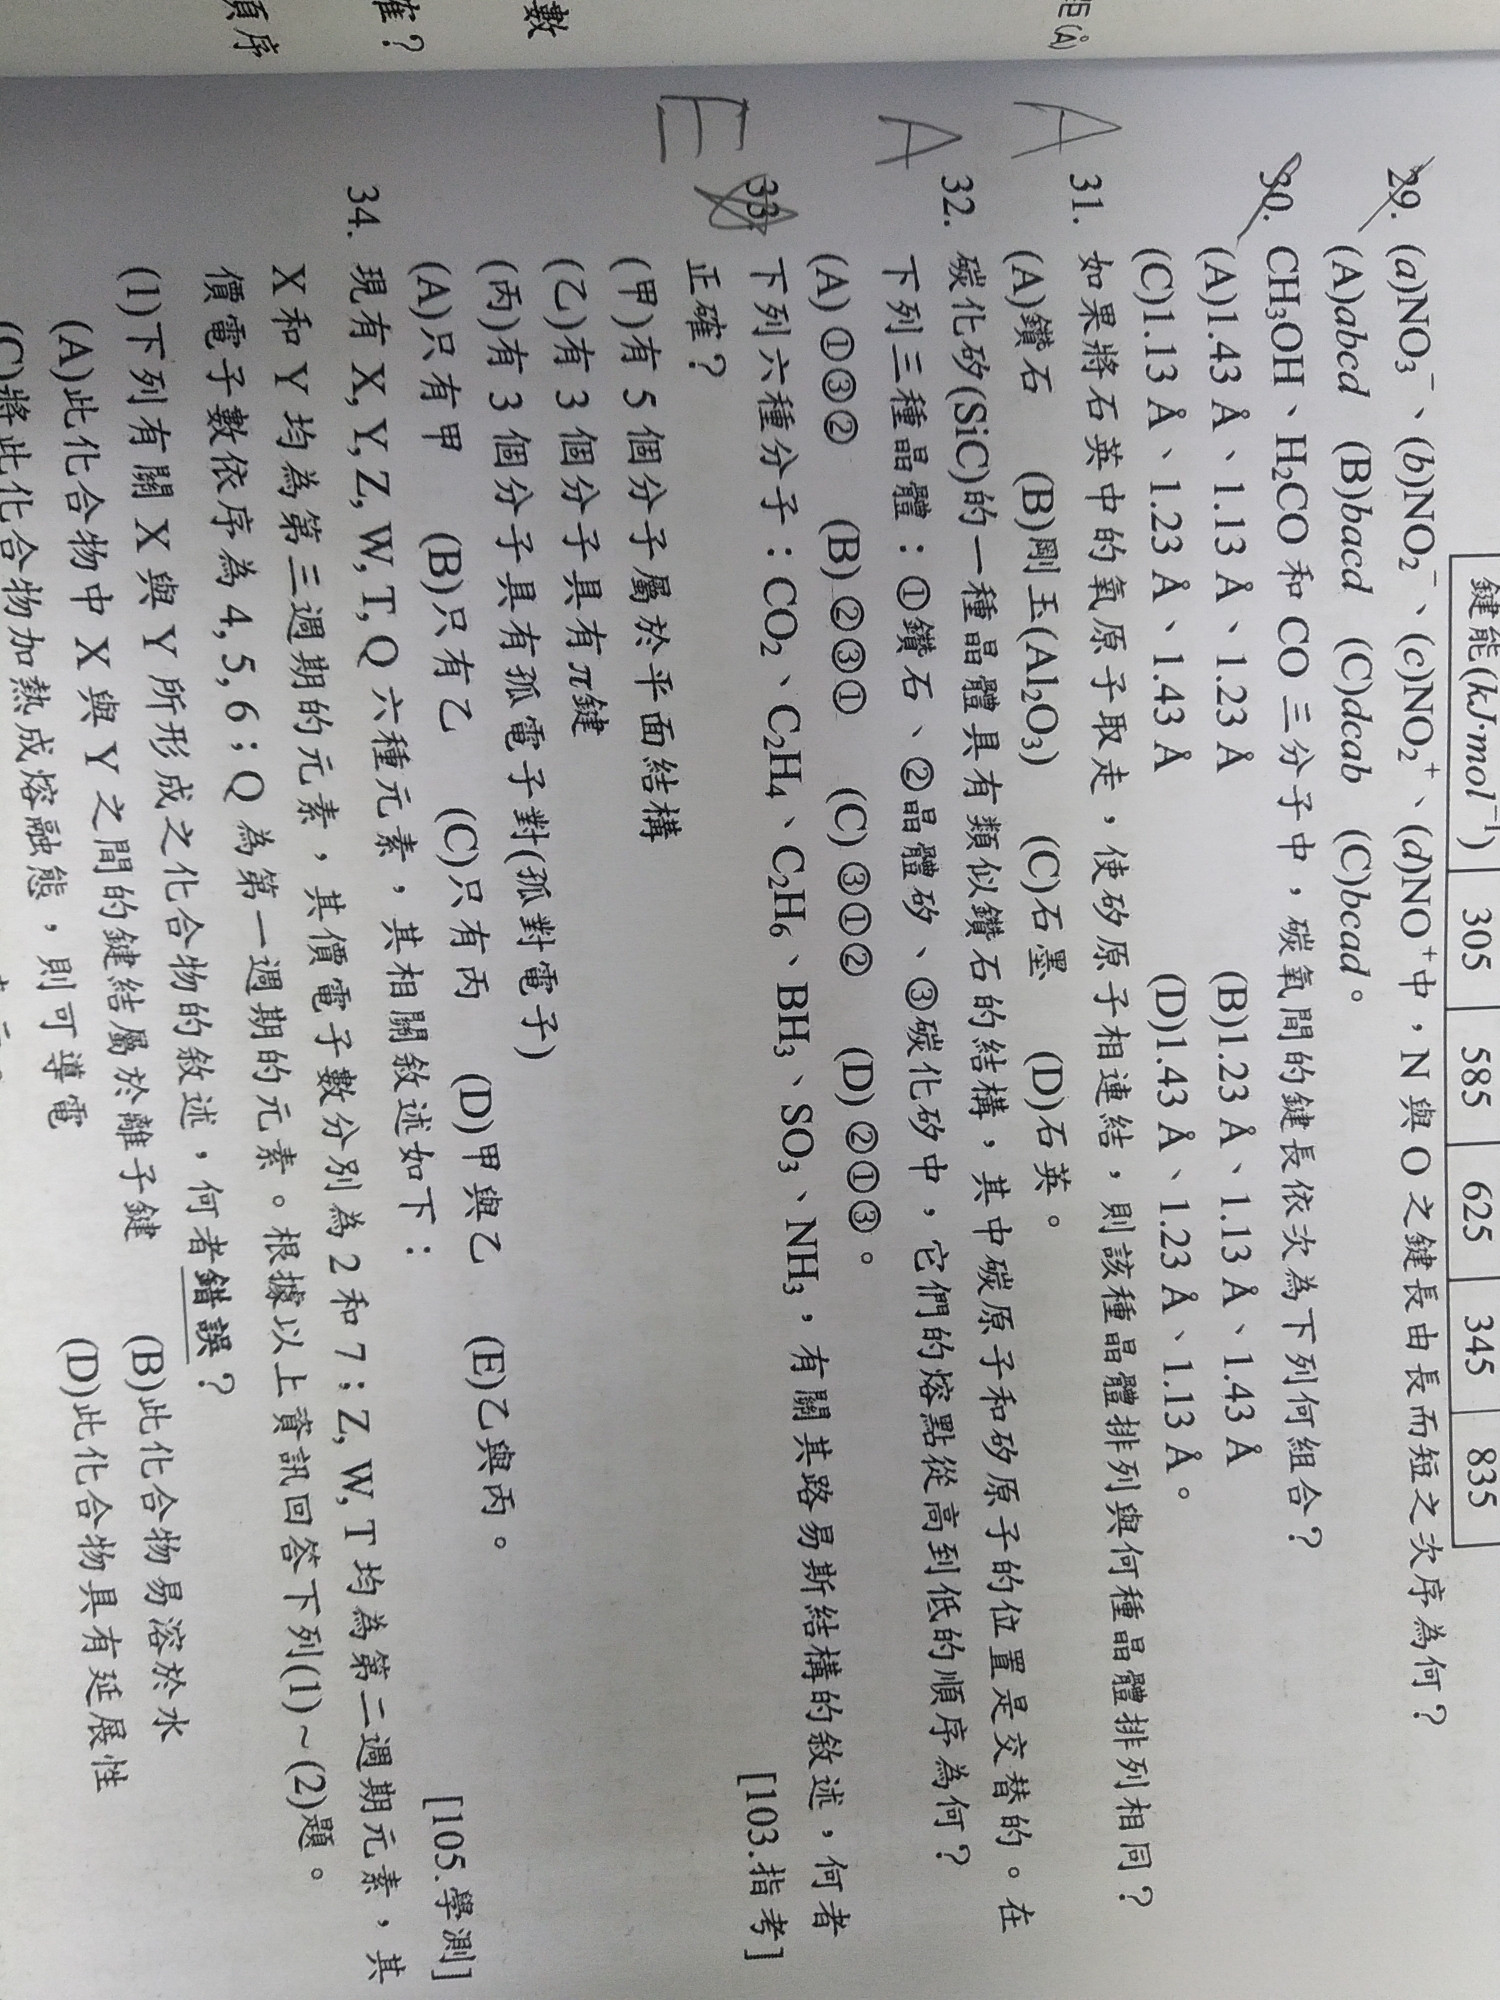 距(Å)
數
確？
順序
鍵能(kJ·mol⁻¹) 305 585 625 345 835
29. (a)NO₃⁻、(b)NO₂⁻、(c)NO₂⁺、(d)NO⁺中，N 與 O 之鍵長由長而短之次序為何？
(A)abcd (B)bacd (C)dcab (C)bcad。
30. CH₃OH、H₂CO 和 CO 三分子中，碳氧間的鍵長依次為下列何組合？
(A)1.43 Å、1.13 Å、1.23 Å (B)1.23 Å、1.13 Å、1.43 Å
(C)1.13 Å、1.23 Å、1.43 Å (D)1.43 Å、1.23 Å、1.13 Å。
A 31. 如果將石英中的氧原子取走，使矽原子相連結，則該種晶體排列與何種晶體排列相同？
(A)鑽石 (B)剛玉(Al₂O₃) (C)石墨 (D)石英。
A 32. 碳化矽(SiC)的一種晶體具有類似鑽石的結構，其中碳原子和矽原子的位置是交替的。在
下列三種晶體：①鑽石、②晶體矽、③碳化矽中，它們的熔點從高到低的順序為何？
(A) ①③② (B) ②③① (C) ③①② (D) ②①③。
E 33. 下列六種分子：CO₂、C₂H₄、C₂H₆、BH₃、SO₃、NH₃，有關其路易斯結構的敘述，何者
正確？ [103.指考]
(甲)有 5 個分子屬於平面結構
(乙)有 3 個分子具有π鍵
(丙)有 3 個分子具有孤電子對(孤對電子)
(A)只有甲 (B)只有乙 (C)只有丙 (D)甲與乙 (E)乙與丙。
34. 現有 X, Y, Z, W, T, Q 六種元素，其相關敘述如下： [105.學測]
X 和 Y 均為第三週期的元素，其價電子數分別為 2 和 7；Z, W, T 均為第二週期元素，其
價電子數依序為 4, 5, 6；Q 為第一週期的元素。根據以上資訊回答下列(1)~(2)題。
(1)下列有關 X 與 Y 所形成之化合物的敘述，何者錯誤？
(A)此化合物中 X 與 Y 之間的鍵結屬於離子鍵 (B)此化合物易溶於水
(C)將此化合物加熱成熔融態，則可導電 (D)此化合物具有延展性